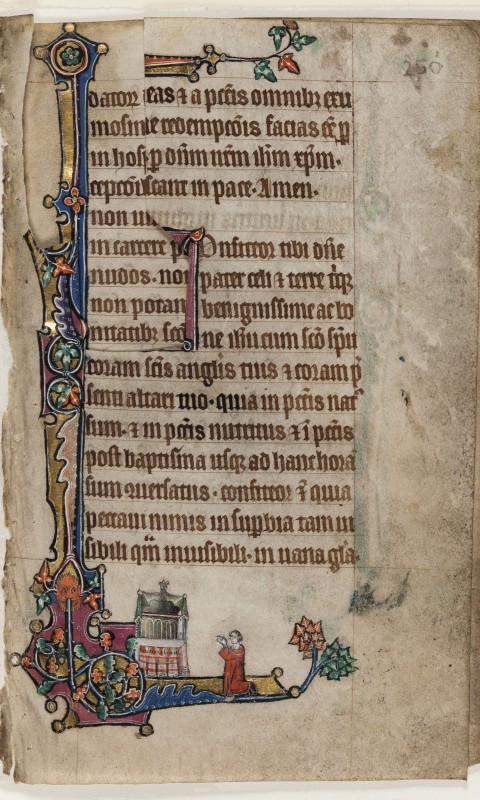 250
dator eas ⁊ a pc̄tis omnibꝫ exu
mosin te redempcōis facias eē ꝑ
in hos ꝑ dn̄m nr̄m ih̄m xp̄m.
requiescant in pace. Amen.
non
in carcere onfiteor tibi dn̄e
nudos. non pater celi ⁊ terre
non potaui benignissime ac bo
ne ih̄u cum sc̄o sp̄u
coram sc̄is anglīs tuis ⁊ coram
senti altari tuo. quia in pc̄tis nat᷒
sum. ⁊ in pc̄tis nutritus ⁊ ī pc̄tis
post baptisma usqꝫ ad hanc horā
sum ꝯuersatus. confiteor quia
peccaui nimis in suꝑbia tam ui
sibili qm̄ inuisibili. in uana gl̄a.